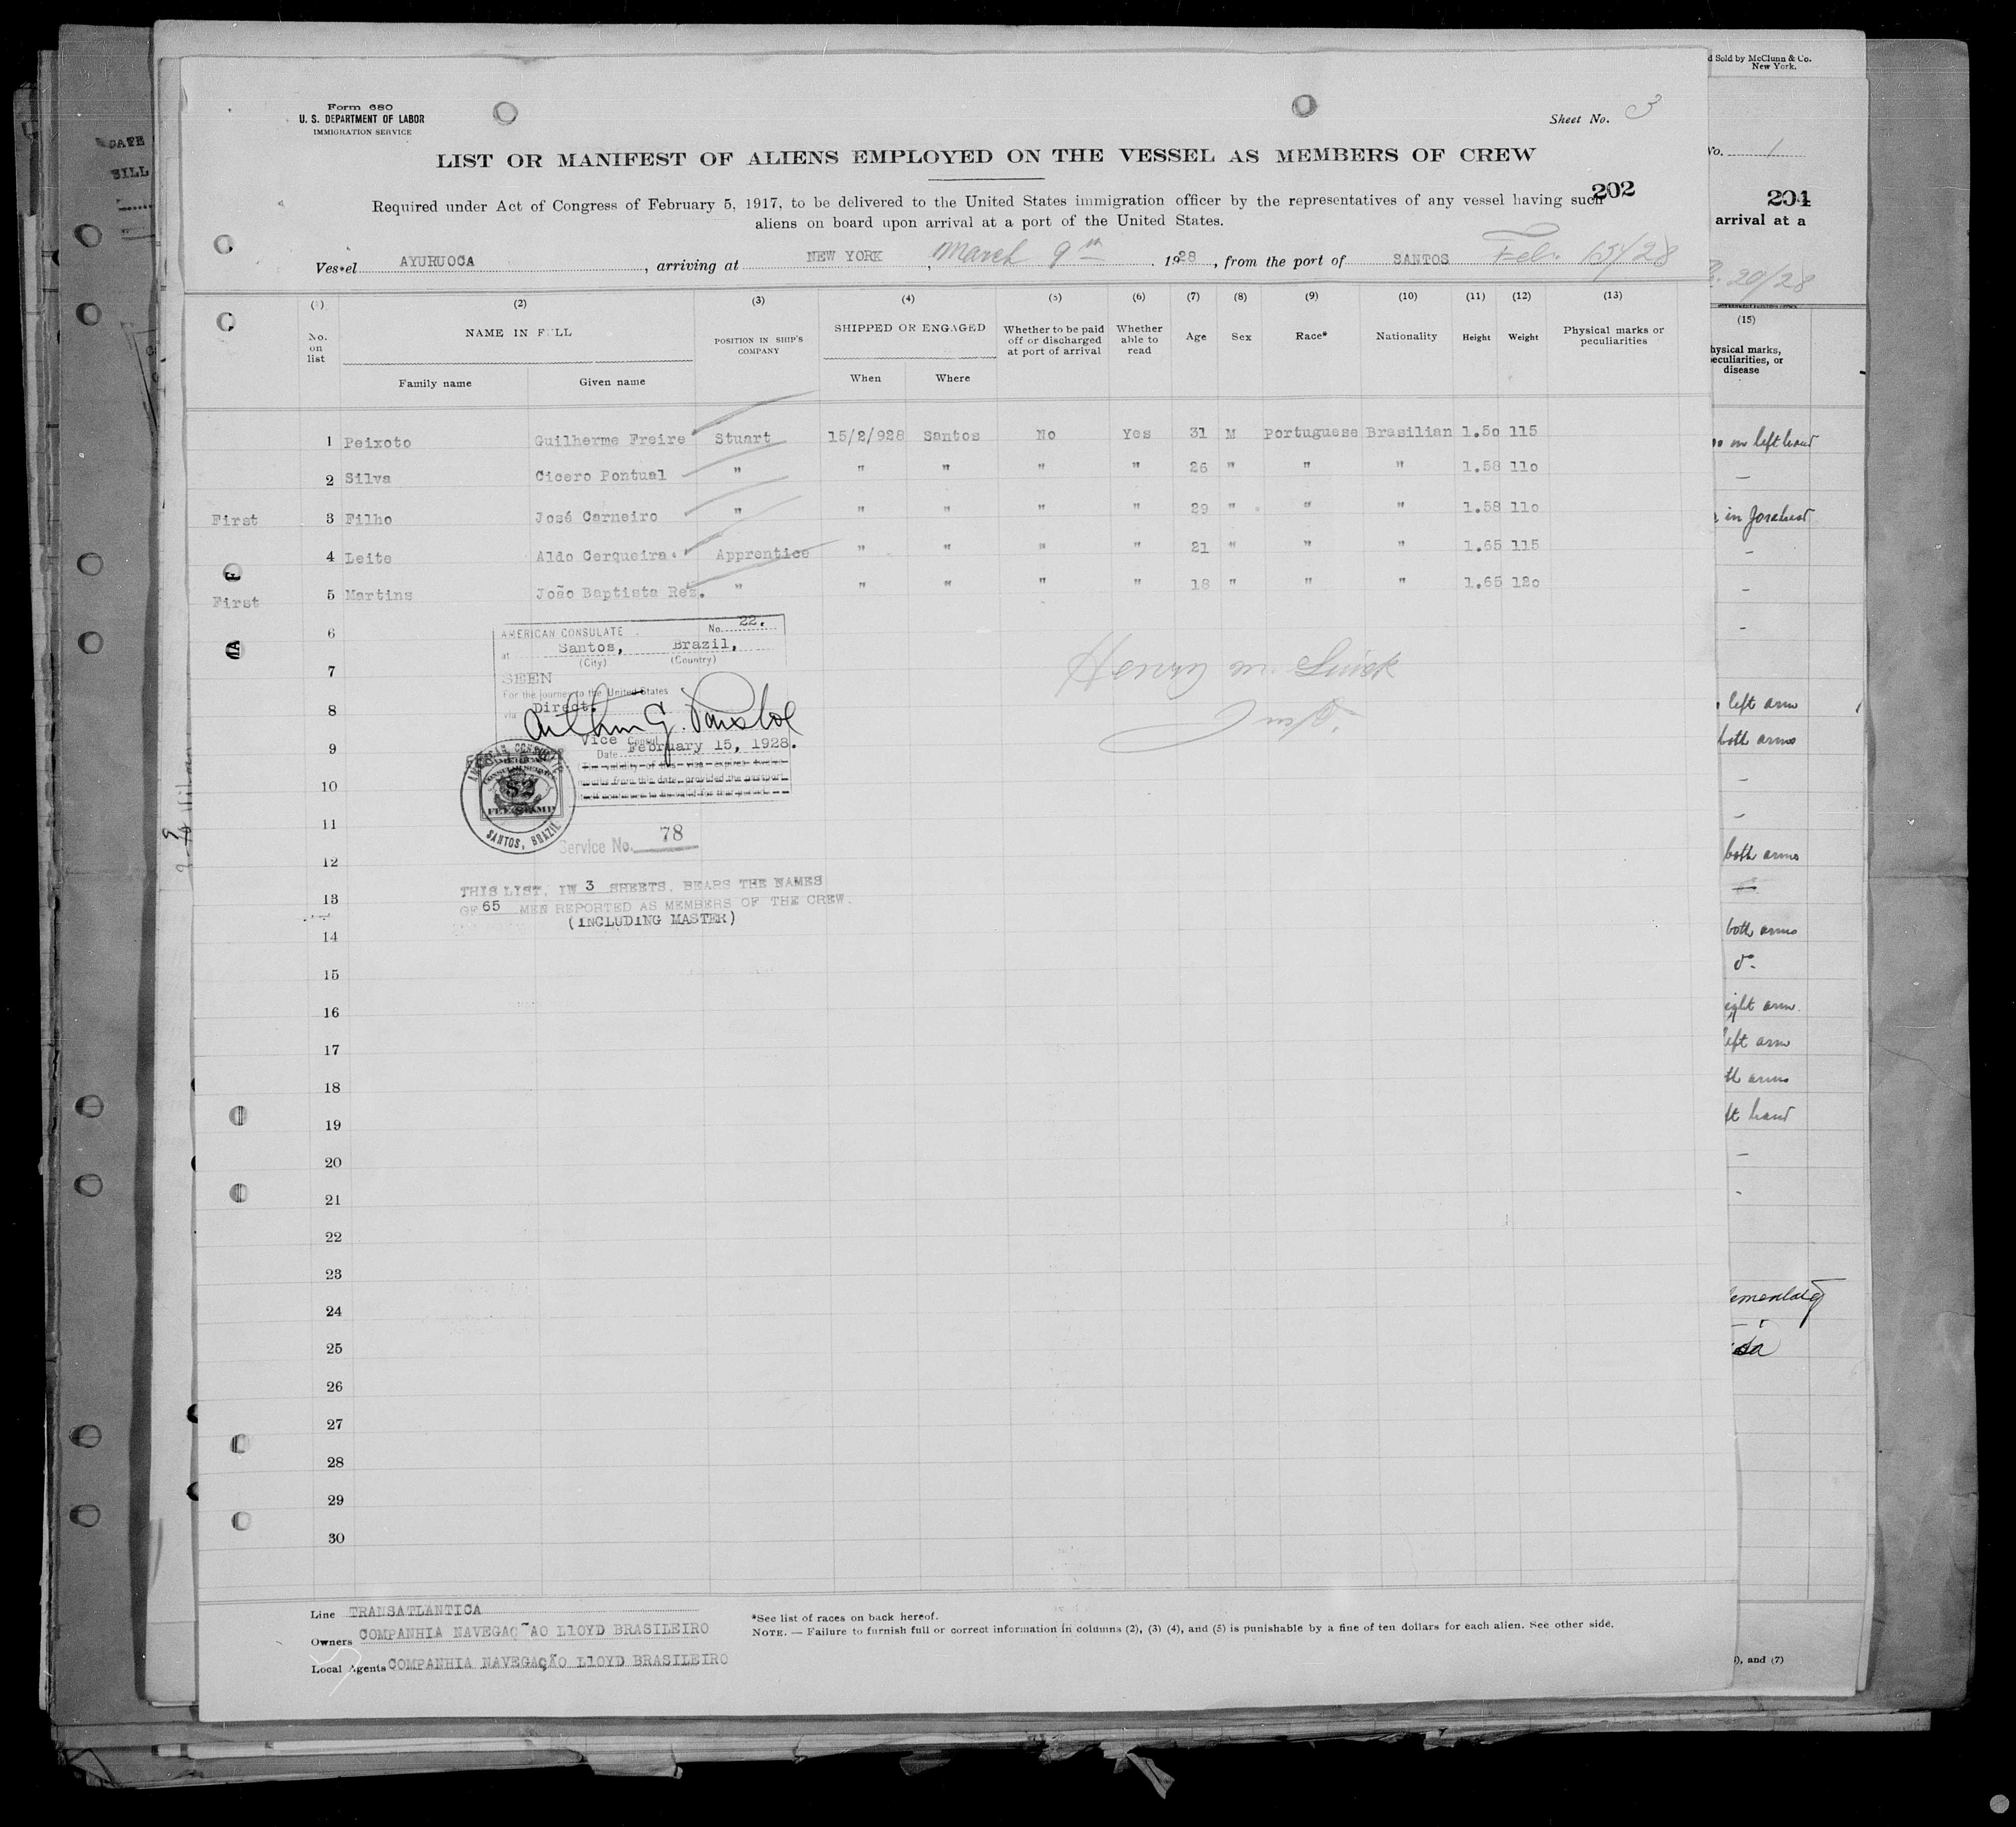 Form 680
U. S. DEPARTMENT OF LABOR
IMMIGRATION SERVICE
Sheet No. 3
LIST OR MANIFEST OF ALIENS EMPLOYED ON THE VESSEL AS MEMBERS OF CREW
202
Required under Act of Congress of February 5, 1917, to be delivered to the United States immigration officer by the representatives of any vessel having such
aliens on board upon arrival at a port of the United States.
Vessel AYURUOCA, arriving at NEW YORK, March 9th, 1928, from the port of SANTOS Feb. 15/28
(1) (2) (3) (4) (5) (6) (7) (8) (9) (10) (11) (12) (13)
No. on list NAME IN FULL POSITION IN SHIP'S COMPANY SHIPPED OR ENGAGED Whether to be paid off or discharged at port of arrival Whether able to read Age Sex Race* Nationality Height Weight Physical marks or peculiarities
Family name Given name When Where
1 Peixoto Guilherme Freire Stuart 15/2/928 Santos No Yes 31 M Portuguese Brasilian 1.50 115
2 Silva Cicero Pontual " " " " " 26 " " " 1.58 110
First 3 Filho José Carneiro " " " " " 29 " " " 1.58 110
4 Leite Aldo Cerqueira. Apprentice " " " " 21 " " " 1.65 115
First 5 Martins João Baptista Rez. " " " " " 18 " " " 1.65 120
6
7
8
9
10
11
12
13
14
15
16
17
18
19
20
21
22
23
24
25
26
27
28
29
30
AMERICAN CONSULATE No. 22.
at Santos, Brazil,
(City) (Country)
SEEN
For the journey to the United States
via Direct.
Arthur G.
Vice Consul
Date February 15, 1928.
(The validity of this visa expires twelve
months from this date, provided the passport
AMERICAN CONSULAR SERVICE
$2
FEE STAMP
SANTOS, BRAZIL
Service No. 78
THIS LIST, IN 3 SHEETS, BEARS THE NAMES
OF 65 MEN REPORTED AS MEMBERS OF THE CREW.
(INCLUDING MASTER)
Henry
Line TRANSATLANTICA
Owners COMPANHIA NAVEGAÇ~AO LlOYD BRASILEIRO
Local Agents COMPANHIA NAVEGAÇÃO LlOYD BRASILEIRO
*See list of races on back hereof.
NOTE. — Failure to furnish full or correct information in columns (2), (3) (4), and (5) is punishable by a fine of ten dollars for each alien. See other side.
d Sold by McClunn & Co.
New York.
No. 1
201
arrival at a
20/28
(15)
hysical marks,
eculiarities, or
disease
on left hand
in forehead
left arm
both arms
both arms
both arms
ight arm.
left arm
th arms
ft hand
), and (7)